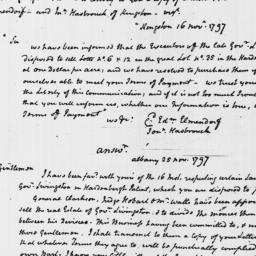 endorf - and Jno. Hasbrouck of Kingston - viz.
"Kingston 16 novr. 1797
"Sir
we have been informed that the Executors of the late Govr. L
disposed to sell Lotts No. 6 & 12 in the great Lot No. 35 in the Harde
at one dollar per acre; and we have resolved to purchase them if
ourselves able to meet your Terms of Payment - We thus
the liberty of this communication; and if it is not too much Trouble
that you will inform us, whether our Information is true,
Terms of Payment
we &c. Edw. Elmendorf
Jona. Hasbrouck
answr.
albany 25 novr. 1797
Gentlemen
I have been favd. with yours of the 16 Inst. respecting certain Lan
Govr. Livingston in Hardenbergh Patent, which you are disposed to p
General Clarkson, Judge Hobart & Mr. Watts have been appoin
sell the real Estate of Govr. Livingston & to divide the monies there
between his Devisees - This Business having been committed to, & und
those Gentlemen. I shall transmit to them a copy of your letter
that whatever Terms they agree to, will be punctually complied
own Part,